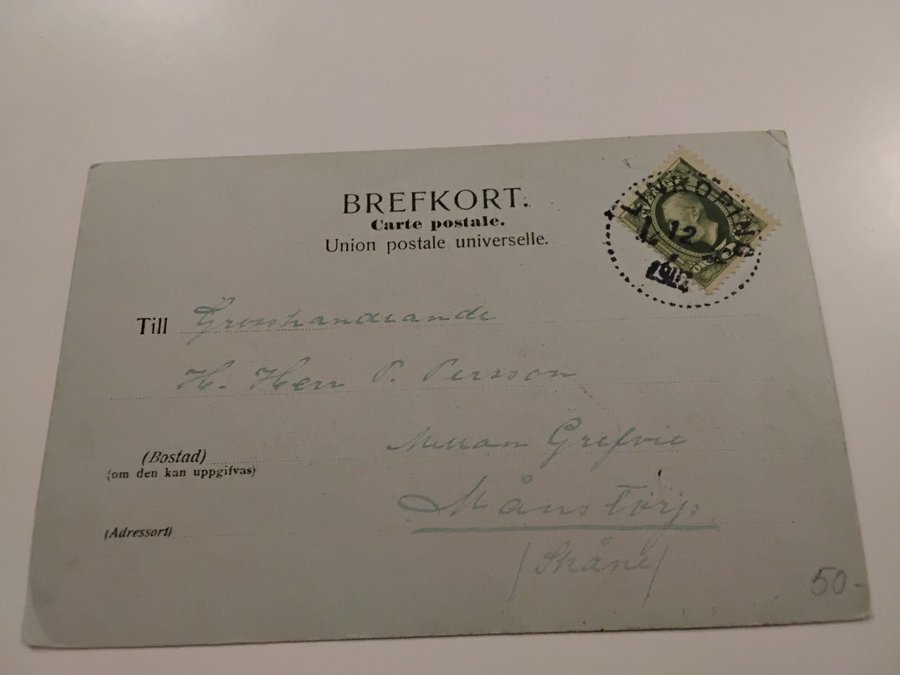 BREFKORT.
Carte postale.
Union postale universelle.
LINKÖPING
12
Till Grosshandlande
H. Herr P. Persson
(Bostad) Mellan Grefvie
(om den kan uppgifvas)
(Adressort) Månstorp
(Skåne)
50-